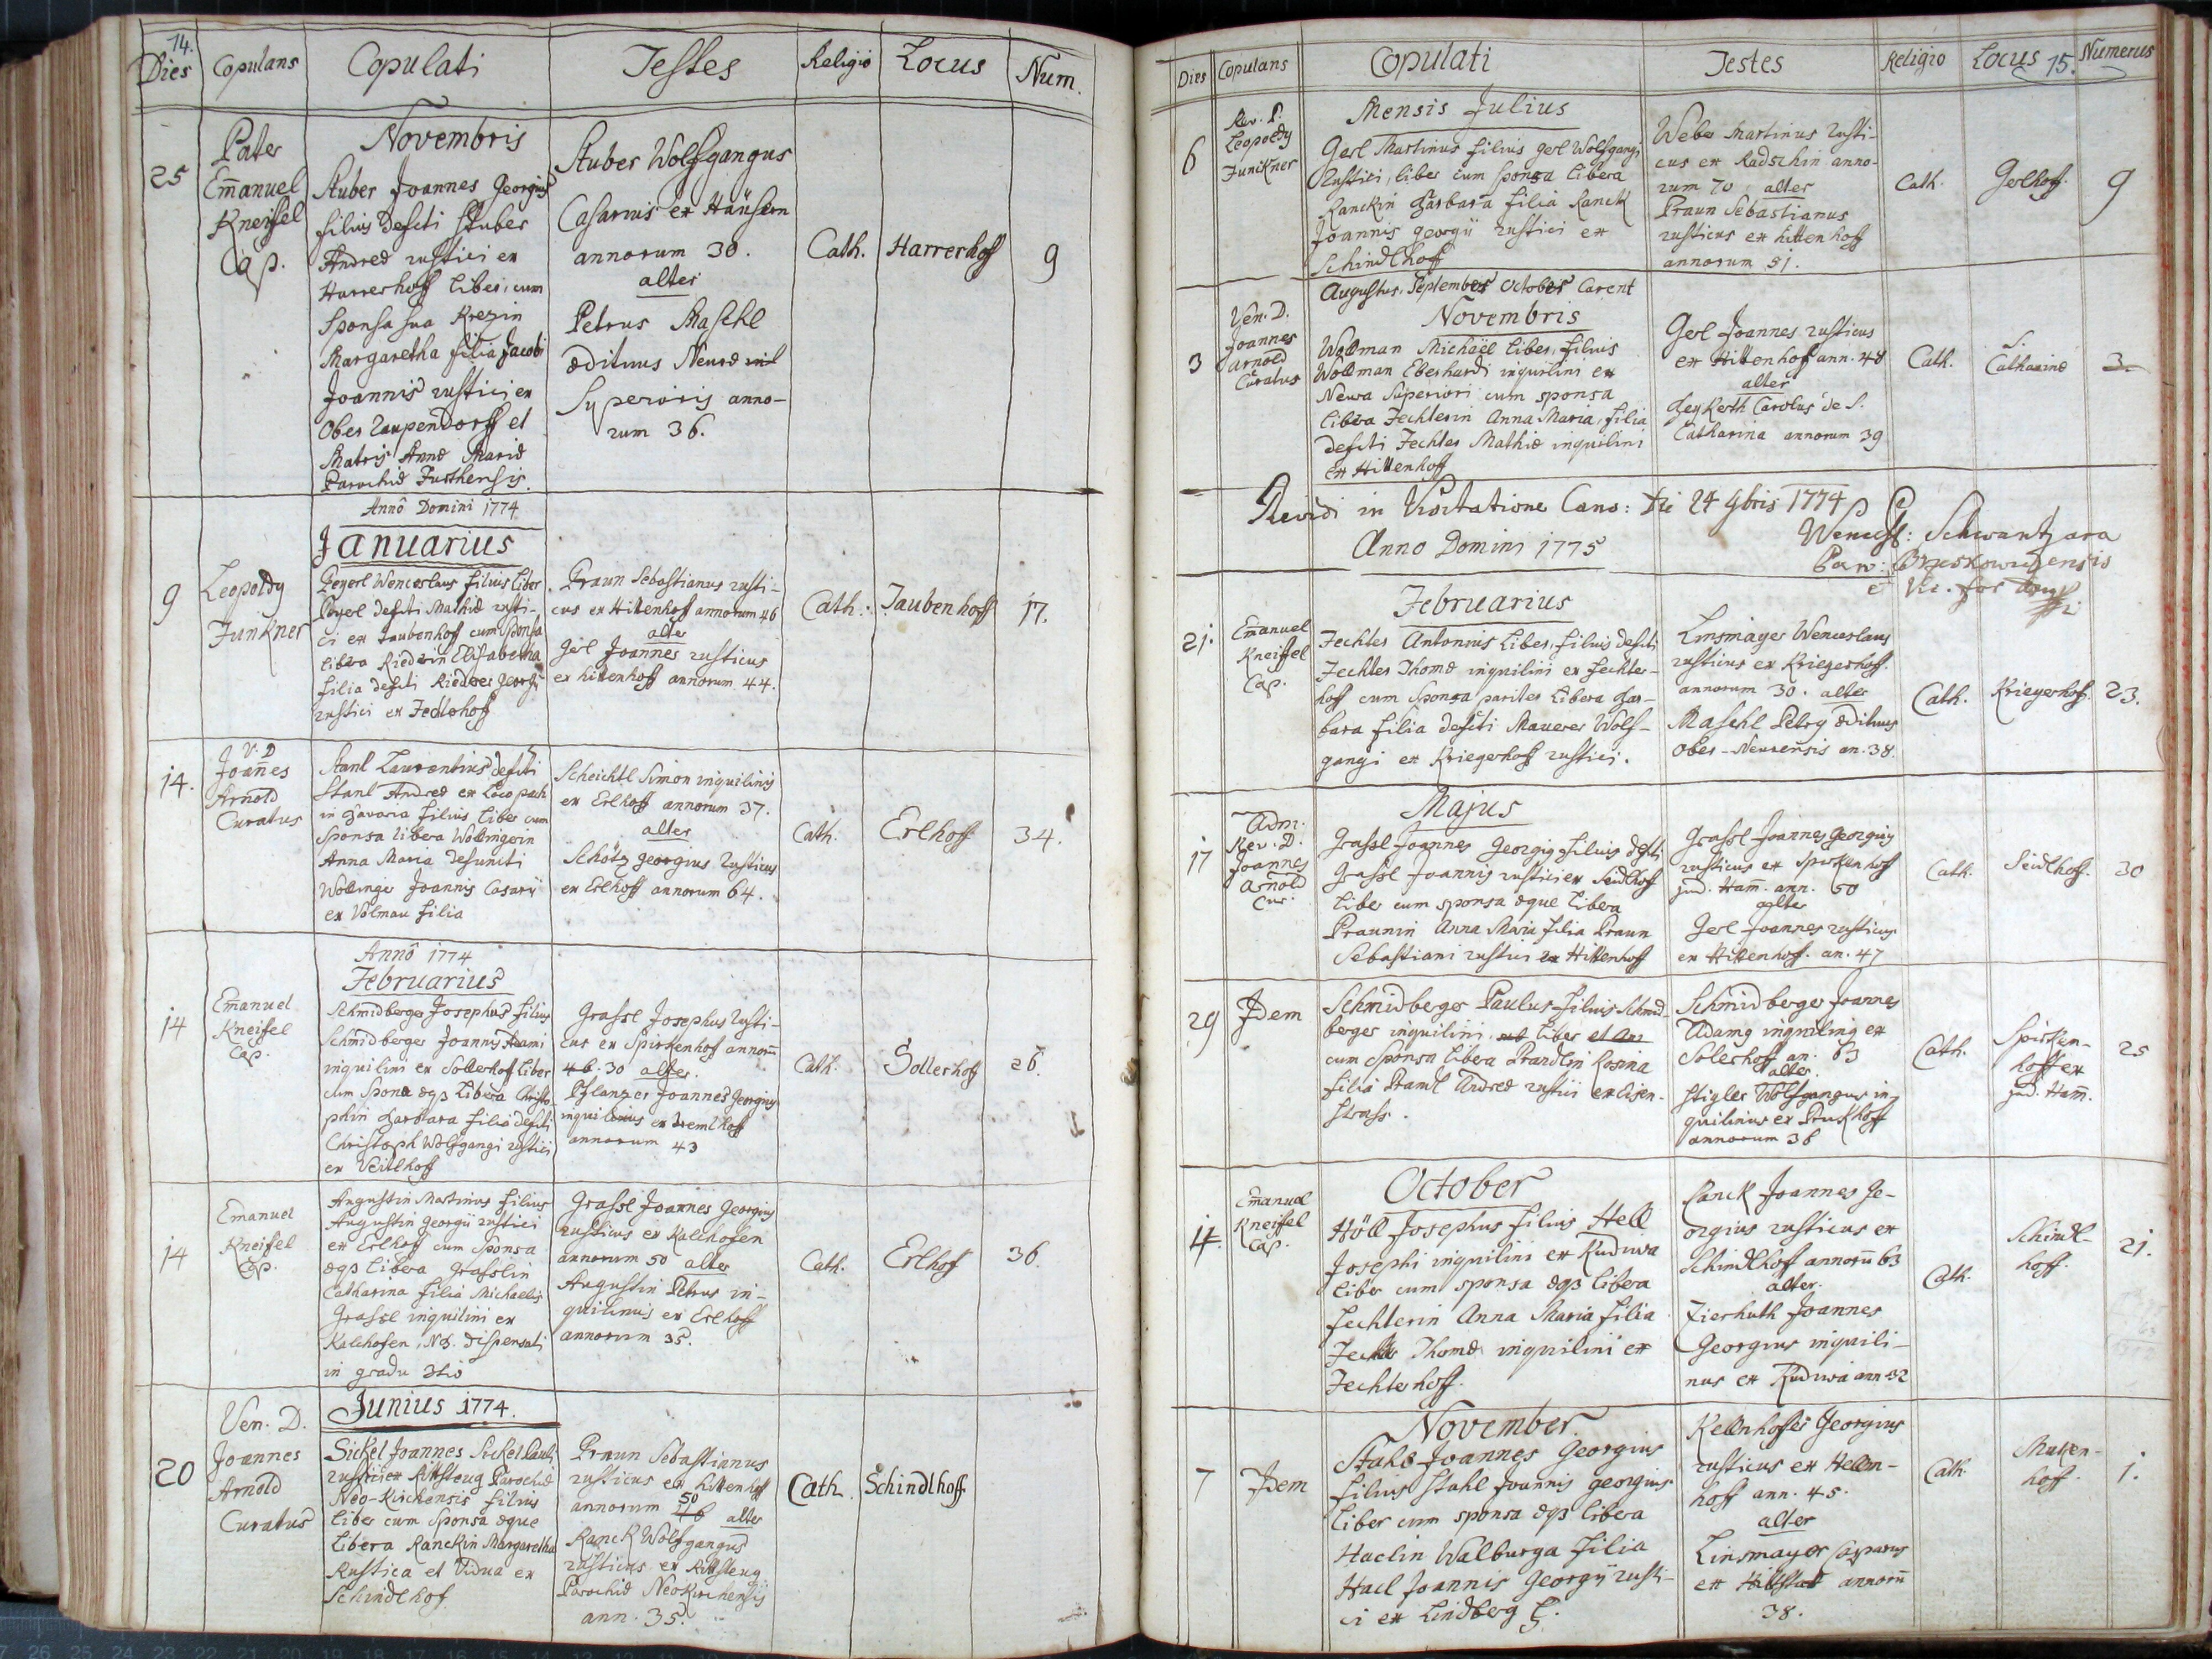 14.
Dies Copulans Copulati Testes Religio Locus Num.
Novembris
25
Pater
Emanuel
Kneissel
Cap.
Stuber Joannes Georgius
filius defcti Stuber
Andreæ rustici ex
Harrerhoff liber, cum
Sponsa sua Krezin
Margaretha filia Jacobi
Joannis rustici ex
Ober Zaupendorff et
Matris Annæ Mariæ
Parochiæ Furthensis.
Stuber Wolfgangus
Casarius ex Häusern
annorum 30.
alter
Petrus Maschl
ædituus Neuræ
Superioris anno-
rum 36.
Cath. Harrerhoff 9
Annô Domini 1774
Januarius
9
Leopoldy
Junkner
Peyerl Wenceslaus filius liber
Peyerl defcti Mathiæ rusti-
ci ex Taubenhoff cum Sponsa
libera Riederin Elisabetha
filia defcti Rieder Georgii
rustici ex Fedlhoff
Praun Sebastianus rusti-
cus ex Hittenhoff annorum 46
alter
Gerl Joannes rusticus
ex hittenhoff annorum 44.
Cath. Taubenhoff 17.
14.
V. D
Joannes
Arnold
Curatus
Stanl Laurentius defcti
Stanl Andreæ ex Loco
in Bavaria filius liber cum
Sponsa libera Wollingerin
Anna Maria defuncti
Wollinger Joannis Casarii
ex Volmau filia
Scheichtl Simon inquilinus
ex Erlhoff annorum 37.
alter
Schötz georgius rusticus
ex Erlhoff annorum 64.
Cath. Erlhoff 34.
Annô 1774
Februarius
14
Emanuel
Kneisel
Cap.
Schmidberger Josephus filius
Schmidberger Joannis Adami
inquilini ex Sollerhof liber
cum Sponsa æqs Libera Christo-
phin Barbara filia defcti
Christoph Wolfgangi rustici
ex Veitlhoff
Grassl Josephus rusti-
cus ex Spirkenhof annorum
46. 30 alter.
Pflanzer Joannes Georgius
inquilinus ex Fremlhoff
annorum 43
Cath. Sollerhoff 26.
14
Emanuel
Kneisel
Cap.
Augustin Martinus filius
Augustin Georgii rustici
ex Erlhof cum Sponsa
æqs libera Grasslin
Catharina filia Michaelis
Grassl inquilini ex
Kalchofen, NB. Dispensati
in gradu 3tio
Grassl Joannes Georgius
rusticus ex Kalchofen
annorum 50 alter
Augustin Petrus in-
quilinus ex Erlhoff
annorum 35.
Cath. Erlhof 36.
Junius 1774.
20
Ven. D.
Joannes
Arnold
Curatus
Sickel Joannes Sickel Pauli
rustici ex Rittsteug Parochiæ
Neo-Kirchensis filius
liber cum Sponsa æque
libera Ranckin Margaretha
Rustica et Vidua ex
Schindlhof
Praun Sebastianus
rusticus ex hittenhoff
annorum 50 46 alter
Ranck Wolfgangus
rusticus ex Rittsteug
Parochiæ Neokirchensis
ann. 35.
Cath. Schindlhoff
Dies Copulans Copulati Testes Religio Locus 15. Numerus
Mensis Julius
6
Rev. P.
Leopoldy
Junckner
Gerl Martinus filius gerl Wolfgangi
Rustici, liber cum sponsa libera
Ranckin Barbara filia Ranck
Joannis georgii rustici ex
Schindlhoff
Weber Martinus rusti-
cus ex Radschin anno-
rum 70 alter
Praun Sebastianus
rusticus ex hittenhoff
annorum 51.
Cath. Gerlhoff. 9
Augustus, September October Carent
Novembris
3
Ven. D.
Joannes
Arnold
Curatus
Wollman Michaël liber, filius
Wollman Eberhardi inquilini ex
Neura Superiori cum sponsa
libera Fechterin Anna Maria, filia
defcti Fechter Mathiæ inquilini
ex Hittenhoff
Gerl Joannes rusticus
ex Hittenhof ann. 48
alter
Carolus de S.
Catharina annorum 39
Cath. S. Catharinæ 3.
Revidi in Visitatione Cano: Die 24 9bris 1774
Wencesl: Schwantzara
Par:
et Vic. for
Anno Domini 1775
Februarius
21.
Emanuel
Kneissel
Cap.
Fechter Antonius liber, filius defcti
Fechter Thomæ inquilini ex Fechter-
hoff cum Sponsa pariter libera Bar-
bara filia defcti Maurer Wolf-
gangi ex Kriegerhoff rustici.
Linsmayer Wenceslaus
rusticus ex Kriegerhoff.
annorum 30. alter
Maschl Petrus ædituus
Ober-Neurensis an. 38.
Cath. Kriegerhoff. 23.
Majus
17
Adm.
Rev. D.
Joannes
Arnold
Cur.
Grassl Joannes Georgius filius defcti
Grassl Joannis rustici ex Seidlhoff
liber cum sponsa æque libera
Praunin Anna Maria filia Praun
Sebastiani rustici ex Hittenhoff
Grassl Joannes Georgius
rusticus ex Spirkenhoff
jud. Ham. ann. 50
alter
Gerl Joannes rusticus
ex Hittenhoff. an. 47
Cath. Seidlhoff. 30
29 Idem
Schmidberger Paulus filius Schmid-
berger inquilini liber et
cum Sponsa libera Prandlin Rosina
filia Prantl Andreæ rustici ex Eisen-
strass.
Schmidberger Joannes
Adamus inquilinus ex
Solerhoff an. 63
alter.
Stigler Wolfgangus in-
quilinus ex Pruckhoff
annorum 36
Cath. Spirken-
hoff ex
jud. Ham.
25
October
Emanuel
Kneissel
Cap.
Höll Josephus filius Hell
Josephi inquilini ex Rudiwa
liber cum sponsa æqs libera
Fechterin Anna Maria filia
Fechter Thomæ inquilini ex
Fechterhoff.
Ranck Joannes Ge-
orgius rusticus ex
Schindlhoff annorum 63
alter.
Zierhuth Joannes
Georgius inquili-
nus ex Rudiwa ann 32
Cath. Schindl-
hoff.
21.
November.
7 Idem
Stahl Joannes Georgius
filius Stahl Joannis georgius
liber cum sponsa æqs libera
Haclin Walburga filia
Hacl Joannis Georgii rusti-
ci ex Lindberg
Kellnhofer Georgius
rusticus ex Helm-
hoff ann. 45.
alter
Linsmayer Casparus
ex annorum
38.
Cath. Maxen-
hoff.
1.